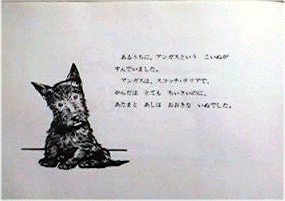 あるうちに、アンガスという　こいぬが
すんでいました。
アンガスは、スコッチ・テリアで、
からだは　とても　ちいさいのに、
あたまと　あしは　おおきな　いぬでした。